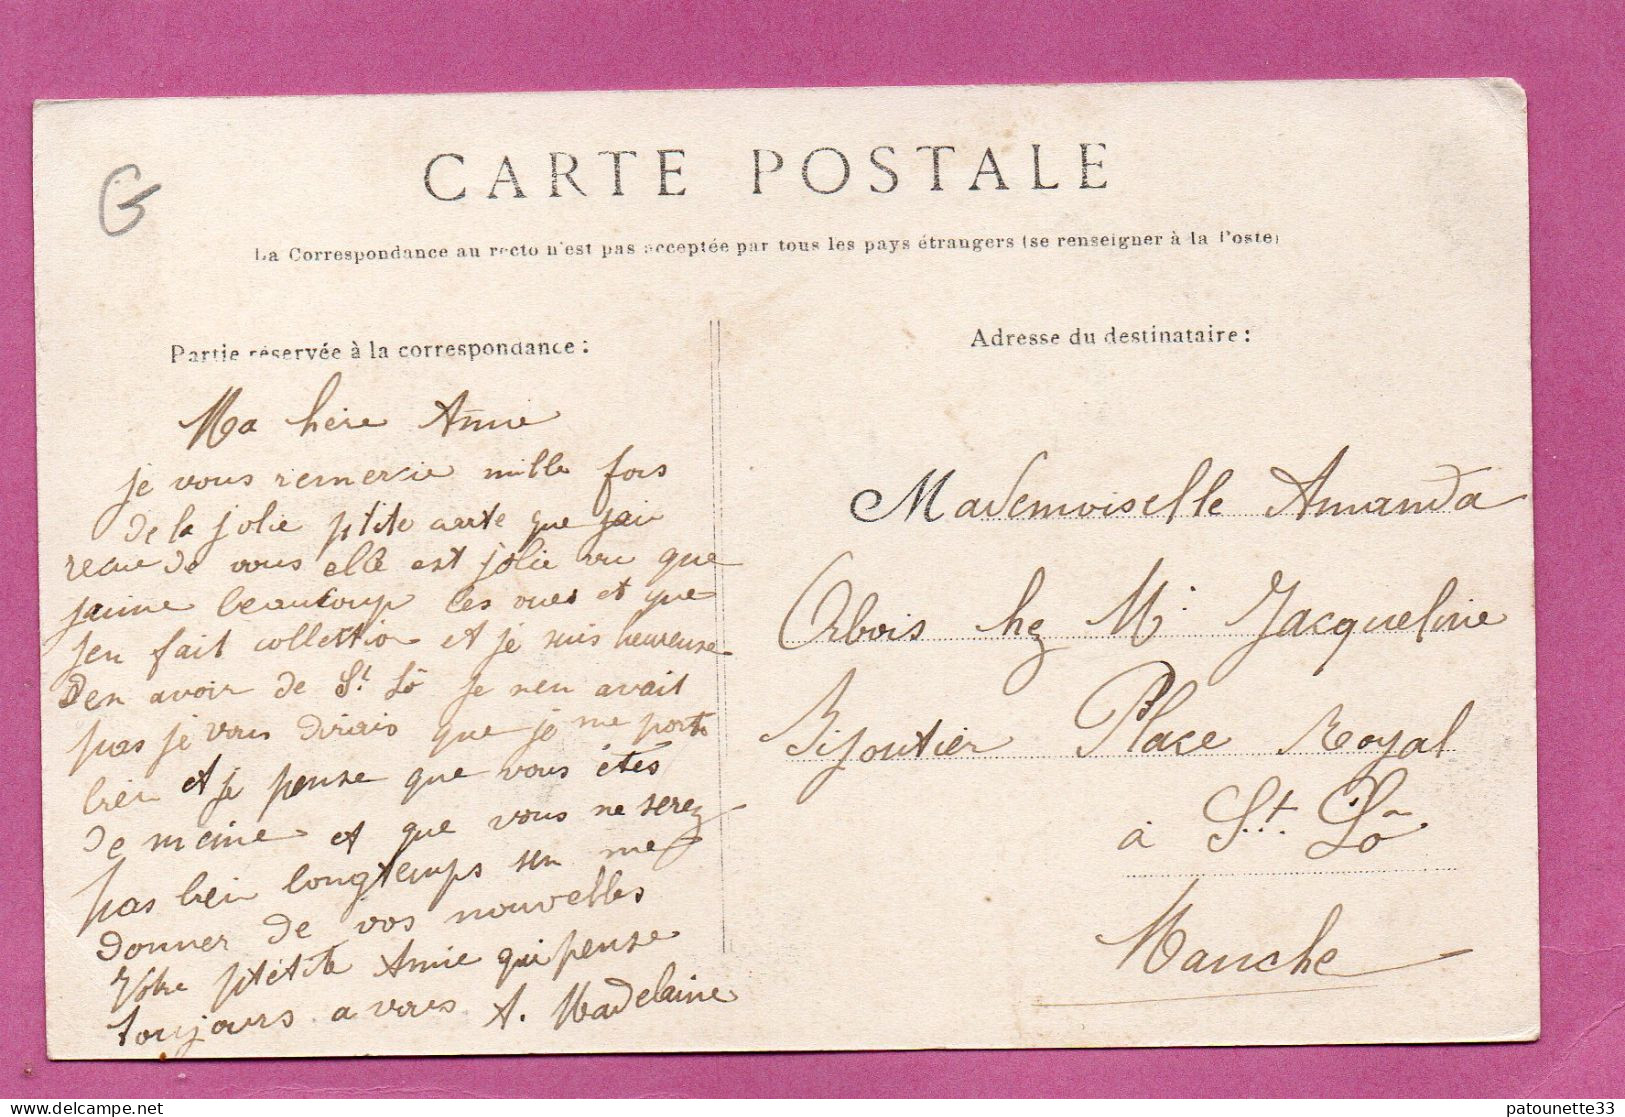 CARTE POSTALE
La Correspondance au recto n'est pas acceptée par tous les pays étrangers (se renseigner à la Poste)
Partie réservée à la correspondance :
Ma hère Amie
je vous remercie mille fois
de la jolie ptite carte que jai
recue de vous elle est jolie vu que
jaime beaucoup les vues et que
jen fait collection et je suis heureuse
den avoir de St Lô je nen avait
pas je vous dirais que je me porte
bien et je pense que vous êtes
de meme et que vous ne serez
pas bien longtemps sen me
donner de vos nouvelles
Vôtre ptétite Amie qui pense
toujours a vous A. Madelaine
Adresse du destinataire :
Mademoiselle Amanda
Orbois hez Mr Jacqueline
Bijoutier Place Royal
à St. Lo
Manche
patounette33